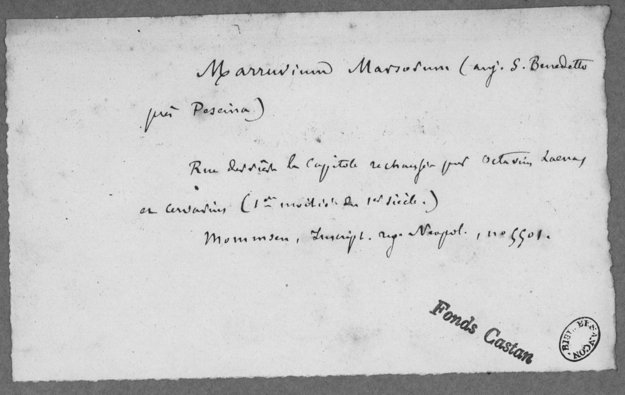 Marruvium Marsorum (auj. S. Benedetto
près Pescina)
Rue derrière le Capitole rechangée par Octavius Laenas
et Cervarius (1ère moitié du 1er siècle.)
Mommsen, Inscript. reg. Neapol., no 5501.
Fonds Castan
BIBL. BESANÇON